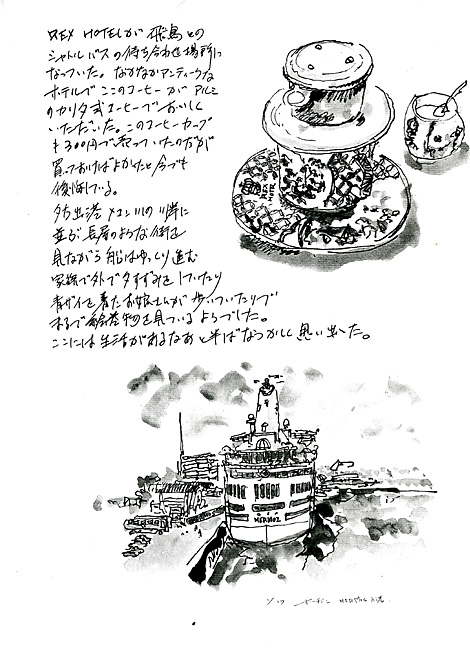 REX HOTELが飛鳥との
シャトルバスの待ち合わせ場所に
なっていた。なかなかアンティークな
ホテルで ここのコーヒーが アルミ
のカリタ式コーヒーでおいしく
いただいた。このコーヒーカップ
も300円で売っていたの
買っておけばよかたと今でも
後悔している。
夕方出港 メコン川の岸に
並ぶ長屋のような街を
見ながら 船はゆっくり進む
家族で外で夕すずみをしていたり
青ザイを着たお娘さんが歩いていたりで
まるで絵巻物を見ているようでした。
ここには生活があるなあと半ばなつかしく思い出った。
REX
HOTEL
MERMOZ
1/17 ホーチミン